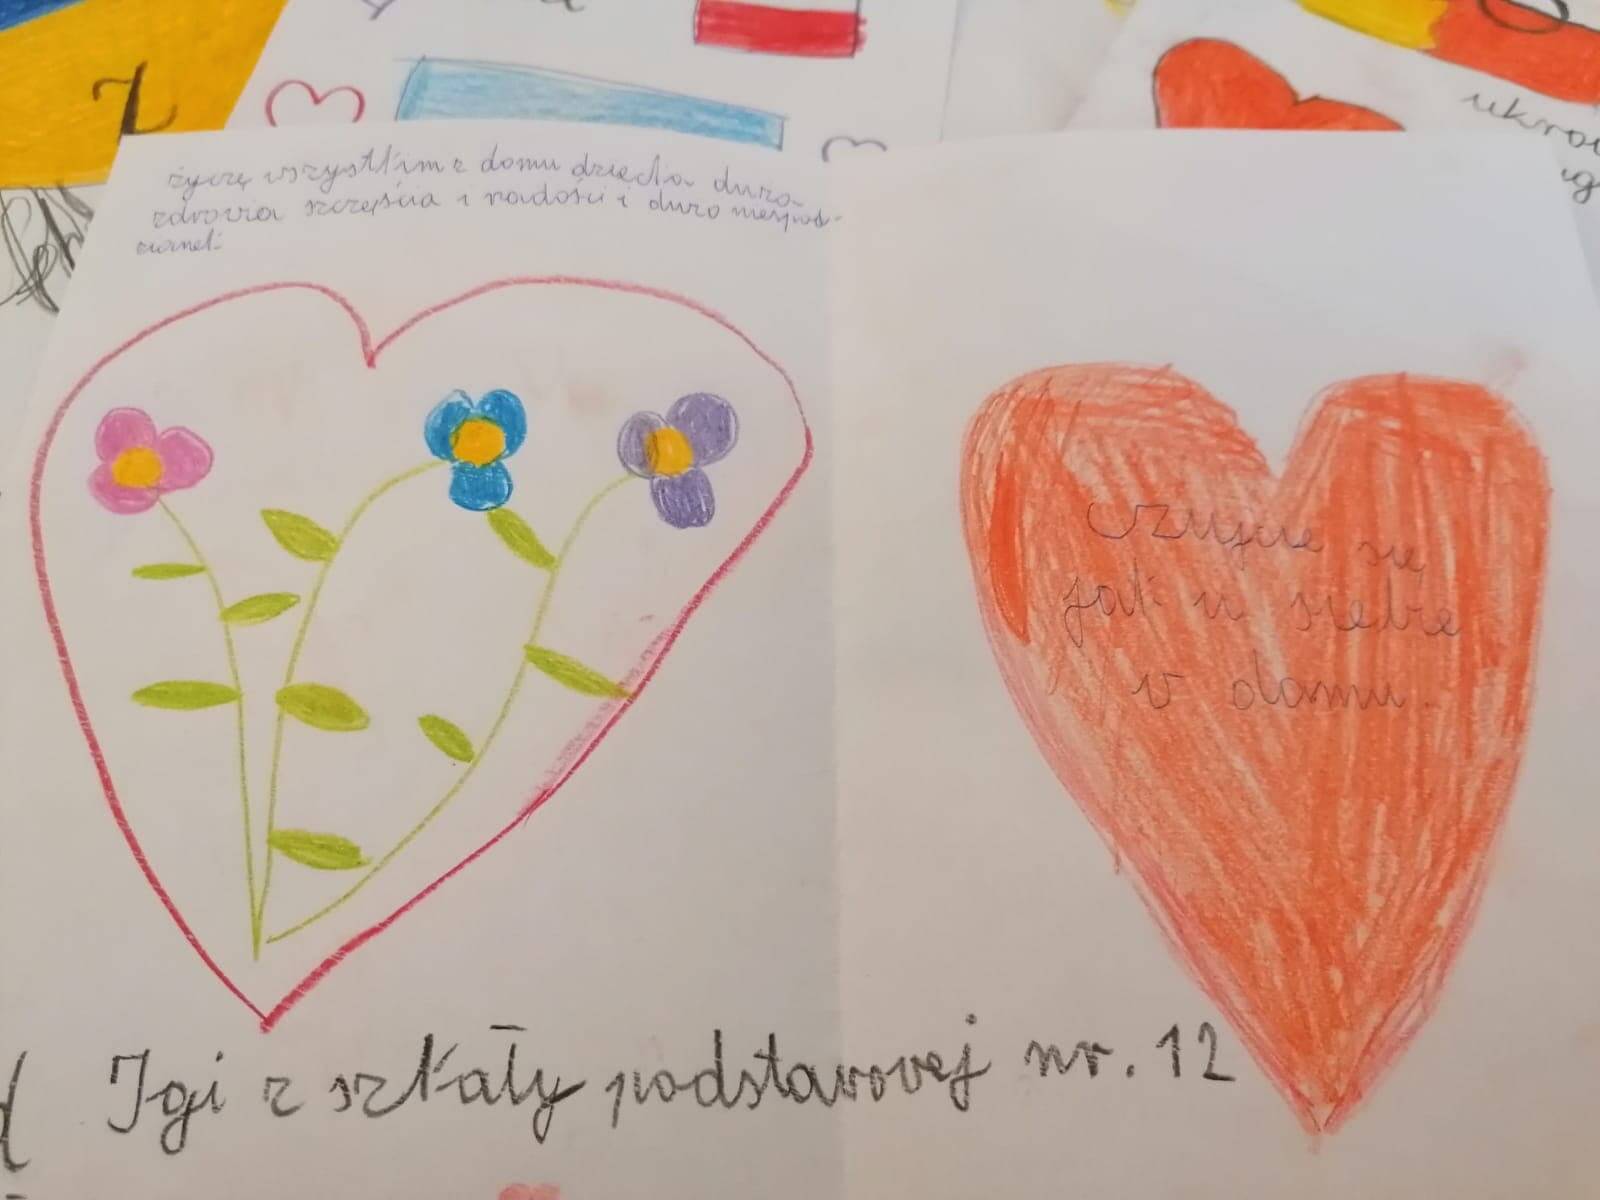 z
ukra
życzę wszystkim z domu dziecka dużo
zdrovia szczęścia i radości i dużo niespod-
zianek
czujcie się
jak u siebie
w domu.
Igi z szkały podstawovej nr. 12